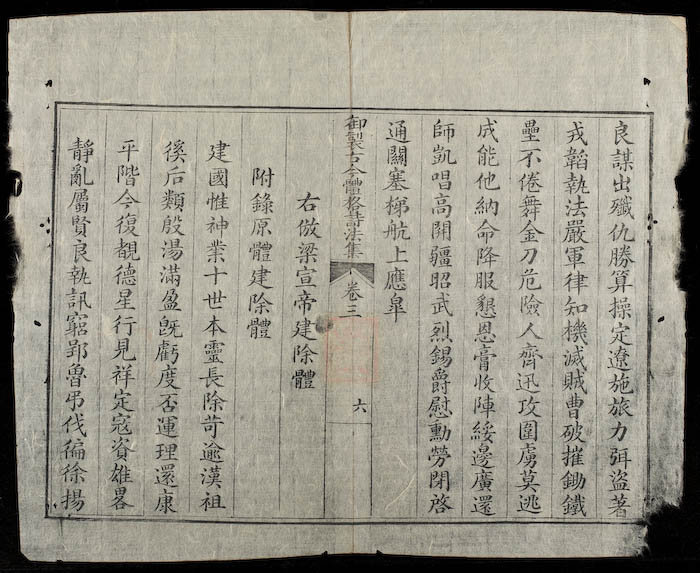 良謀出殲仇勝算操定遼施旅力弭盜著
戎韜執法嚴軍律知機滅賊曹破摧鋤鐵
壘不倦舞金刀危險人齊迅攻圍虜莫逃
成能他納命降服懇恩膏收陣綏邊廣還
師凱唱高開疆昭武烈錫爵慰勳勞閉啓
通關塞梯航上應臯
御製古今體格詩法集
卷三
六
右倣梁宣帝建除體
附錄原體建除體
建國惟神業十世本靈長除苛逾漢祖
徯后類殷湯滿盈旣虧度否運理還康
平階今復覩德星行見祥定寇資雄畧
靜亂屬賢良執訊窮郢魯弔伐徧徐揚